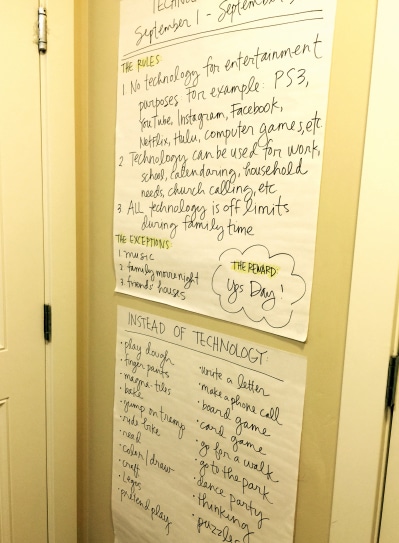 TECHNOL
September 1 - September
THE RULES
1. No technology for entertainment
purposes. For example: PS3,
YouTube, Instagram, Facebook,
Netflix, Hulu, computer games, etc
2. Technology can be used for work,
school, calendaring, household
needs, church calling, etc
3. ALL technology is off limits
during family time
THE EXCEPTIONS:
1. music
2. family movie night
3. friends' houses
THE REWARD:
Ups Day!
INSTEAD OF TECHNOLOGY:
• play dough
• finger paints
• magna-tiles
• bake
• jump on tramp
• ride bike
• read
• color/draw
• craft
• legos
• pretend play
• write a letter
• make a phone call
• board game
• card game
• go for a walk
• go to the park
• dance party
• thinking
• puzzles